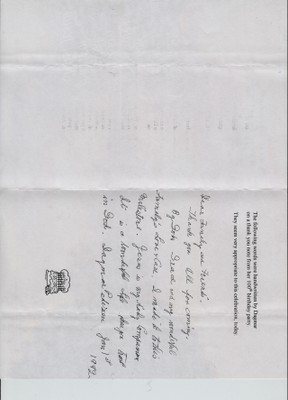 The following words were handwritten by Dagmar
on a thank you note from her 100th birthday party.
They seem very appropriate to this celebration, today.
Dear Family and Friends,
Thank you all for coming.
By Gods Grace and my wonderful
family's love &
Jesus is my daily Companion
It is a wonderful life
in God. Dagmar Pedersen June 1st
1999.